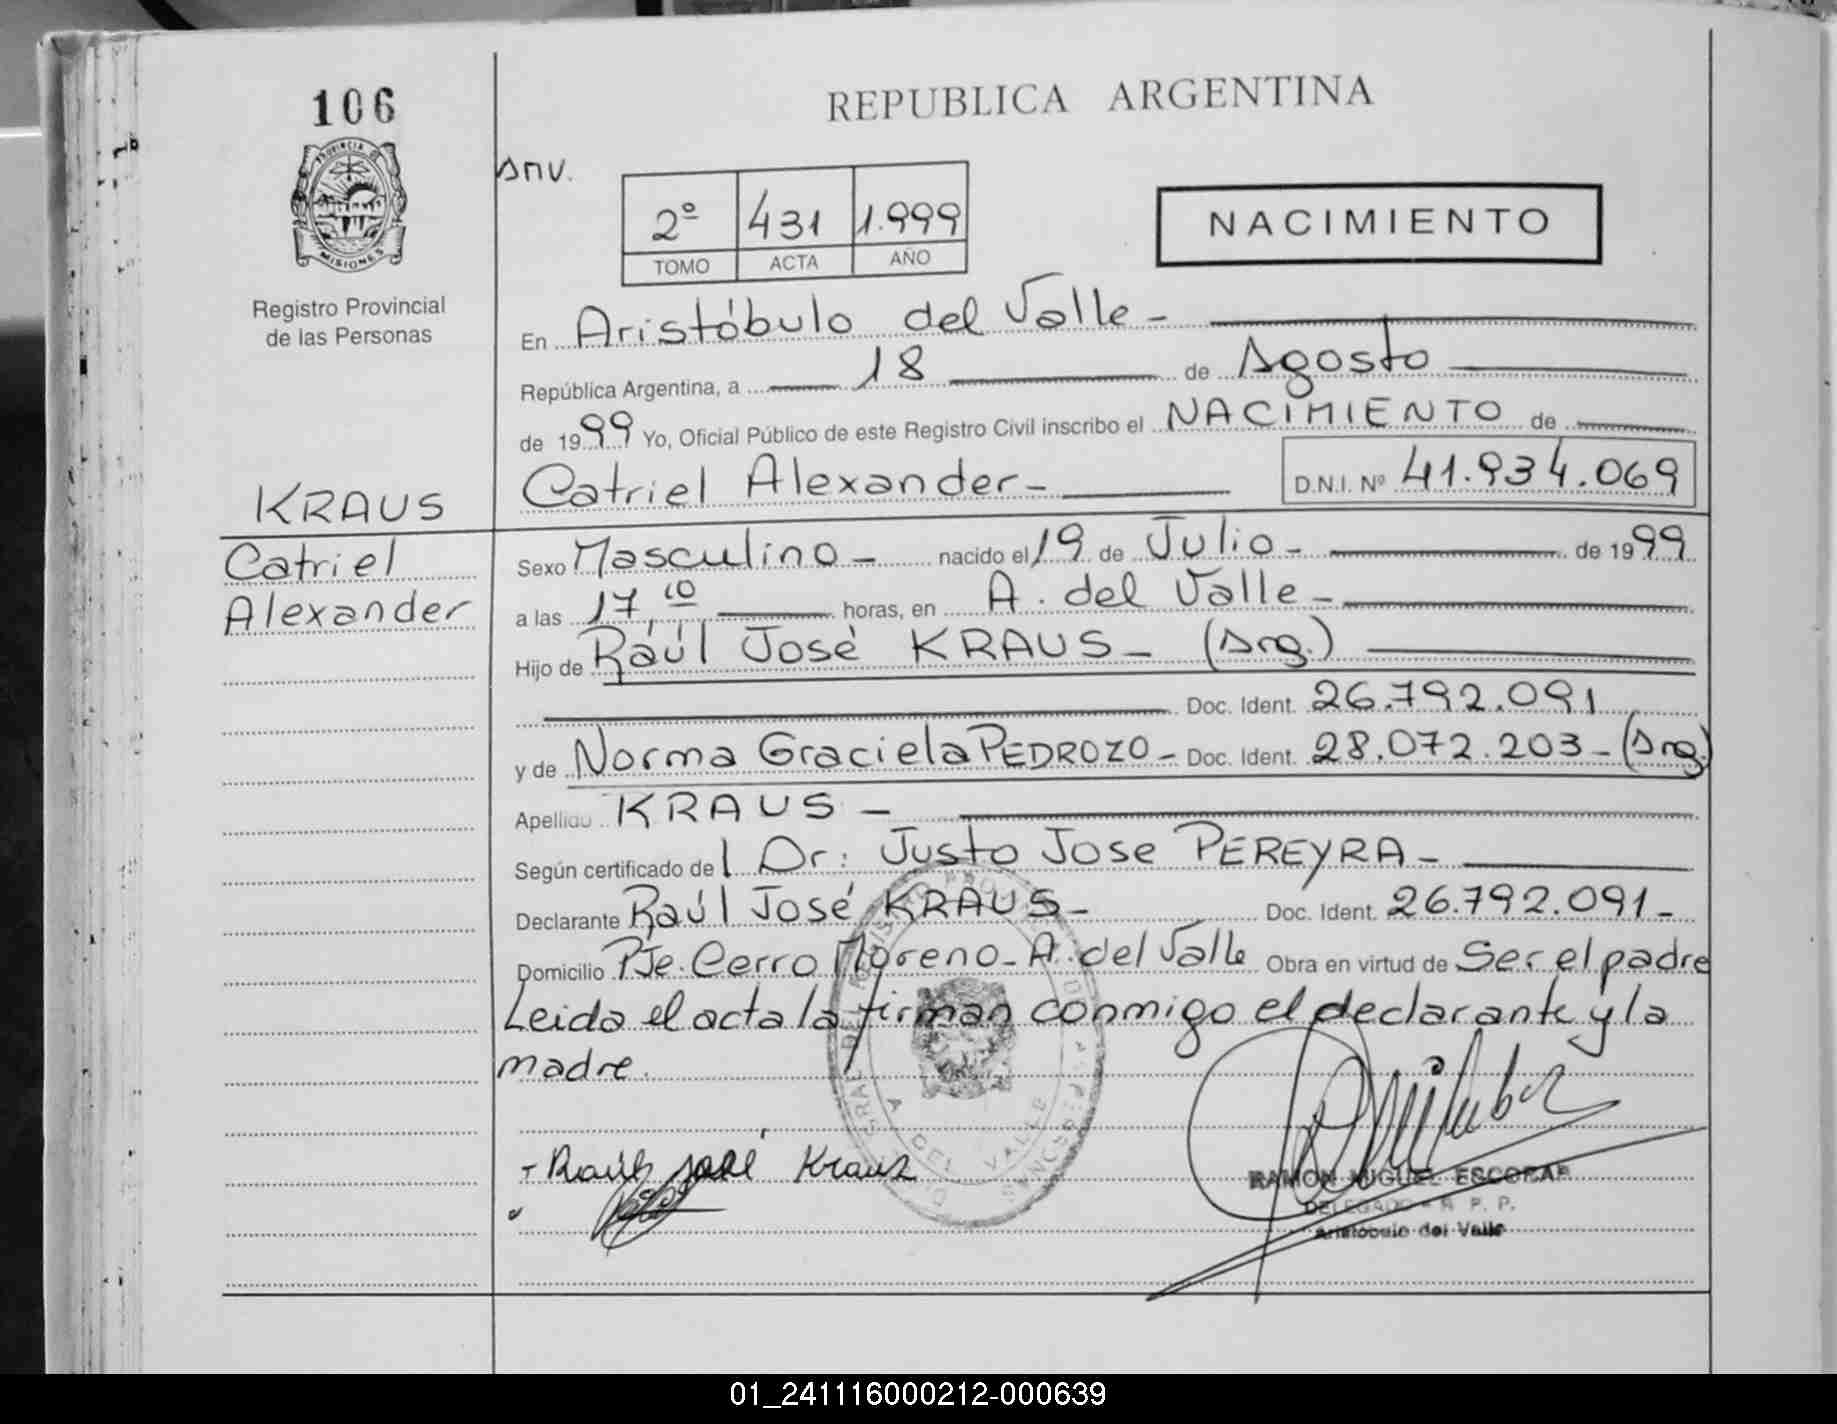 106
REPUBLICA ARGENTINA
PROVINCIA DE
MISIONES
Registro Provincial
de las Personas
anv.
2º 431 1.999
TOMO ACTA AÑO
NACIMIENTO
En Aristóbulo del Valle -
República Argentina, a 18 de Agosto
de 1999 Yo, Oficial Público de este Registro Civil inscribo el NACIMIENTO de
KRAUS
Catriel Alexander - D.N.I. Nº 41.934.069
Catriel
Alexander
Sexo Masculino - nacido el 19 de Julio - de 1999
a las 17,10 horas, en A. del Valle -
Hijo de Raúl José KRAUS - (Arg.)
Doc. Ident. 26.792.091
y de Norma Graciela PEDROZO - Doc. Ident. 28.072.203 - (Arg.)
Apellido KRAUS -
Según certificado del Dr: Justo Jose PEREYRA -
Declarante Raúl José KRAUS - Doc. Ident. 26.792.091 -
Domicilio Pje. Cerro Moreno - A. del Valle Obra en virtud de Ser el padre
Leida el acta la firman conmigo el declarante y la
madre.
A DEL VALLE
Raúl José Kraus
RAMON MIGUEL ESCOBAR
DELEGADO - R. P. P.
Aristobulo del Valle
01_241116000212-000639